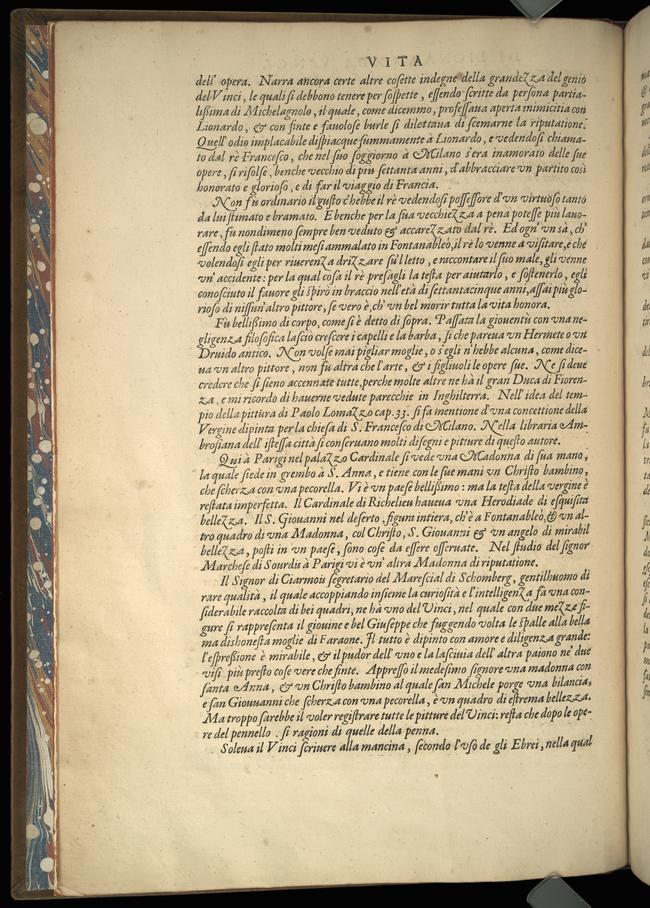 VITA
dell' opera. Narra ancora certe altre cosette indegne della grandezza del genio
del Vinci, le quali si debbono tenere per sospette, essendo scritte da persona partia-
lissima di Michelagnolo, il quale, come dicemmo, professaua aperta inimicitia con
Lionardo, & con finte e fauolose burle si dilettaua di scemarne la riputatione.
Quell' odio implacabile dispiacque summamente à Lionardo, e vedendosi chiama-
to dal rè Francesco, che nel suo soggiorno à Milano s'era inamorato delle sue
opere, si risolse, benche vecchio di piu settanta anni, d'abbracciare un partito così
honorato e glorioso, e di far il viaggio di Francia.
Non fu ordinario il gusto c'hebbe il rè vedendosi possessore d'vn virtuoso tanto
da lui stimato e bramato. E benche per la sua vecchiezza a pena potesse più lauo-
rare, fu nondimeno sempre ben veduto & accarezzato dal rè. Ed ogn' vn sà, ch'
essendo egli stato molti mesi ammalato in Fontanableò, il rè lo venne à visitare, e che
volendosi egli per riuerenza drizzare su'l letto, e raccontare il suo male, gli venne
vn' accidente: per la qual cosa il rè presagli la testa per aiutarlo, e sostenerlo, egli
conosciuto il fauore gli spirò in braccio nell'età di settantacinque anni, assai più glo-
rioso di nissun' altro pittore, se vero è, ch' vn bel morir tutta la vita honora.
Fù bellissimo di corpo, come si è detto di sopra. Passata la giouentù con vna ne-
gligenza filosofica lasciò crescere i capelli e la barba, si che pareua vn Hermete o vn
Druido antico. Non volse mai pigliar moglie, o s egli n'hebbe alcuna, come dice-
ua vn altro pittore, non fu altra che l'arte, & i figliuoli le opere sue. Ne si deue
credere che si sieno accennate tutte, perche molte altre ne hà il gran Duca di Fioren-
za, e mi ricordo di hauerne vedute parecchie in Inghilterra. Nell' idea del tem-
pio della pittura di Paolo Lomazzo cap. 33. si fa mentione d'vna concettione della
Vergine dipinta per la chiesa di S. Francesco di Milano. Nella libraria Am-
brosiana dell' istessa città si conseruano molti disegni e pitture di questo autore.
Qui à Parigi nel palazzo Cardinale si vede vna Madonna di sua mano,
la quale siede in grembo à S. Anna, e tiene con le sue mani vn Christo bambino,
che scherza con vna pecorella. Vi è vn paese bellissimo: ma la testa della vergine è
restata imperfetta. Il Cardinale di Richelieu haueua vna Herodiade di esquisita
bellezza. Il S. Giouanni nel deserto, figura intiera, ch'è a Fontanableò, & vn al-
tro quadro di vna Madonna, col Christo, S. Giouanni & vn angelo di mirabil
bellezza, posti in vn paese, sono cose da essere osseruate. Nel studio del signor
Marchese di Sourdis à Parigi vi è vn' altra Madonna di riputatione.
Il Signor di Ciarmois segretario del Marescial di Schomberg, gentilhuomo di
rare qualità, il quale accoppiando insieme la curiosità e l'intelligenza fa vna con-
siderabile raccolta di bei quadri, ne hà vno del Vinci, nel quale con due mezze fi-
gure si rappresenta il giouine e bel Giuseppe che fuggendo volta le spalle alla bella
ma dishonesta moglie di Faraone. Il tutto è dipinto con amore e diligenza grande:
l'espressione è mirabile, & il pudor dell' vno e la lasciuia dell' altra paiono ne' due
visi più presto cose vere che finte. Appresso il medesimo signore vna madonna con
santa Anna, & vn Christo bambino al quale san Michele porge vna bilancia,
e san Giouuanni che scherza con vna pecorella, è vn quadro di estrema bellezza.
Ma troppo sarebbe il voler registrare tutte le pitture del Vinci: resta che dopo le ope-
re del pennello, si ragioni di quelle della penna.
Soleua il Vinci scriuere alla mancina, secondo l'vso de gli Ebrei, nella qual